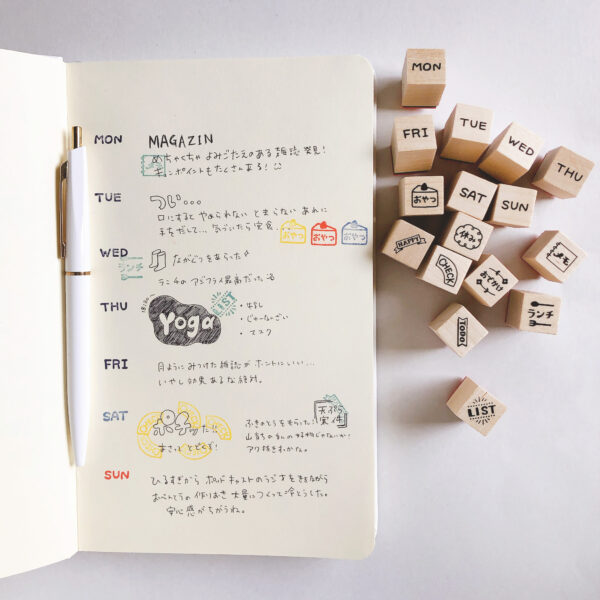 MON MAGAZIN
めちゃくちゃ よみごたえのある 雑誌 発見!
ポイントもたくさんある!
TUE つい...
口にすると やめられない とまらない あれに
手をだして... 気づいたら完食...
おやつ おやつ おやつ
WED ながぐつをあらった
ランチ ランチの アジフライ最高だった
THU Yoga LIST
・牛乳
・じゃーなざい
・マスク
FRI 月ように みつけた 雑誌が ホントにいい...
いやし効果 あるな 絶対。
SAT ポチッた!!
あさって とどくぞ!
天ぷら
実行
ふきのとうをもらった!
アク抜きわかな。
SUN ひるすぎから ポッドキャストのラジオをききながら
おべんとうの 作りおき 大量につくって冷とうした。
安心感がちがうね。
MON
FRI
TUE
WED
THU
おやつ
SAT
SUN
HAPPY
休み
CHECK
おでかけ
メモ
TODO
ランチ
LIST